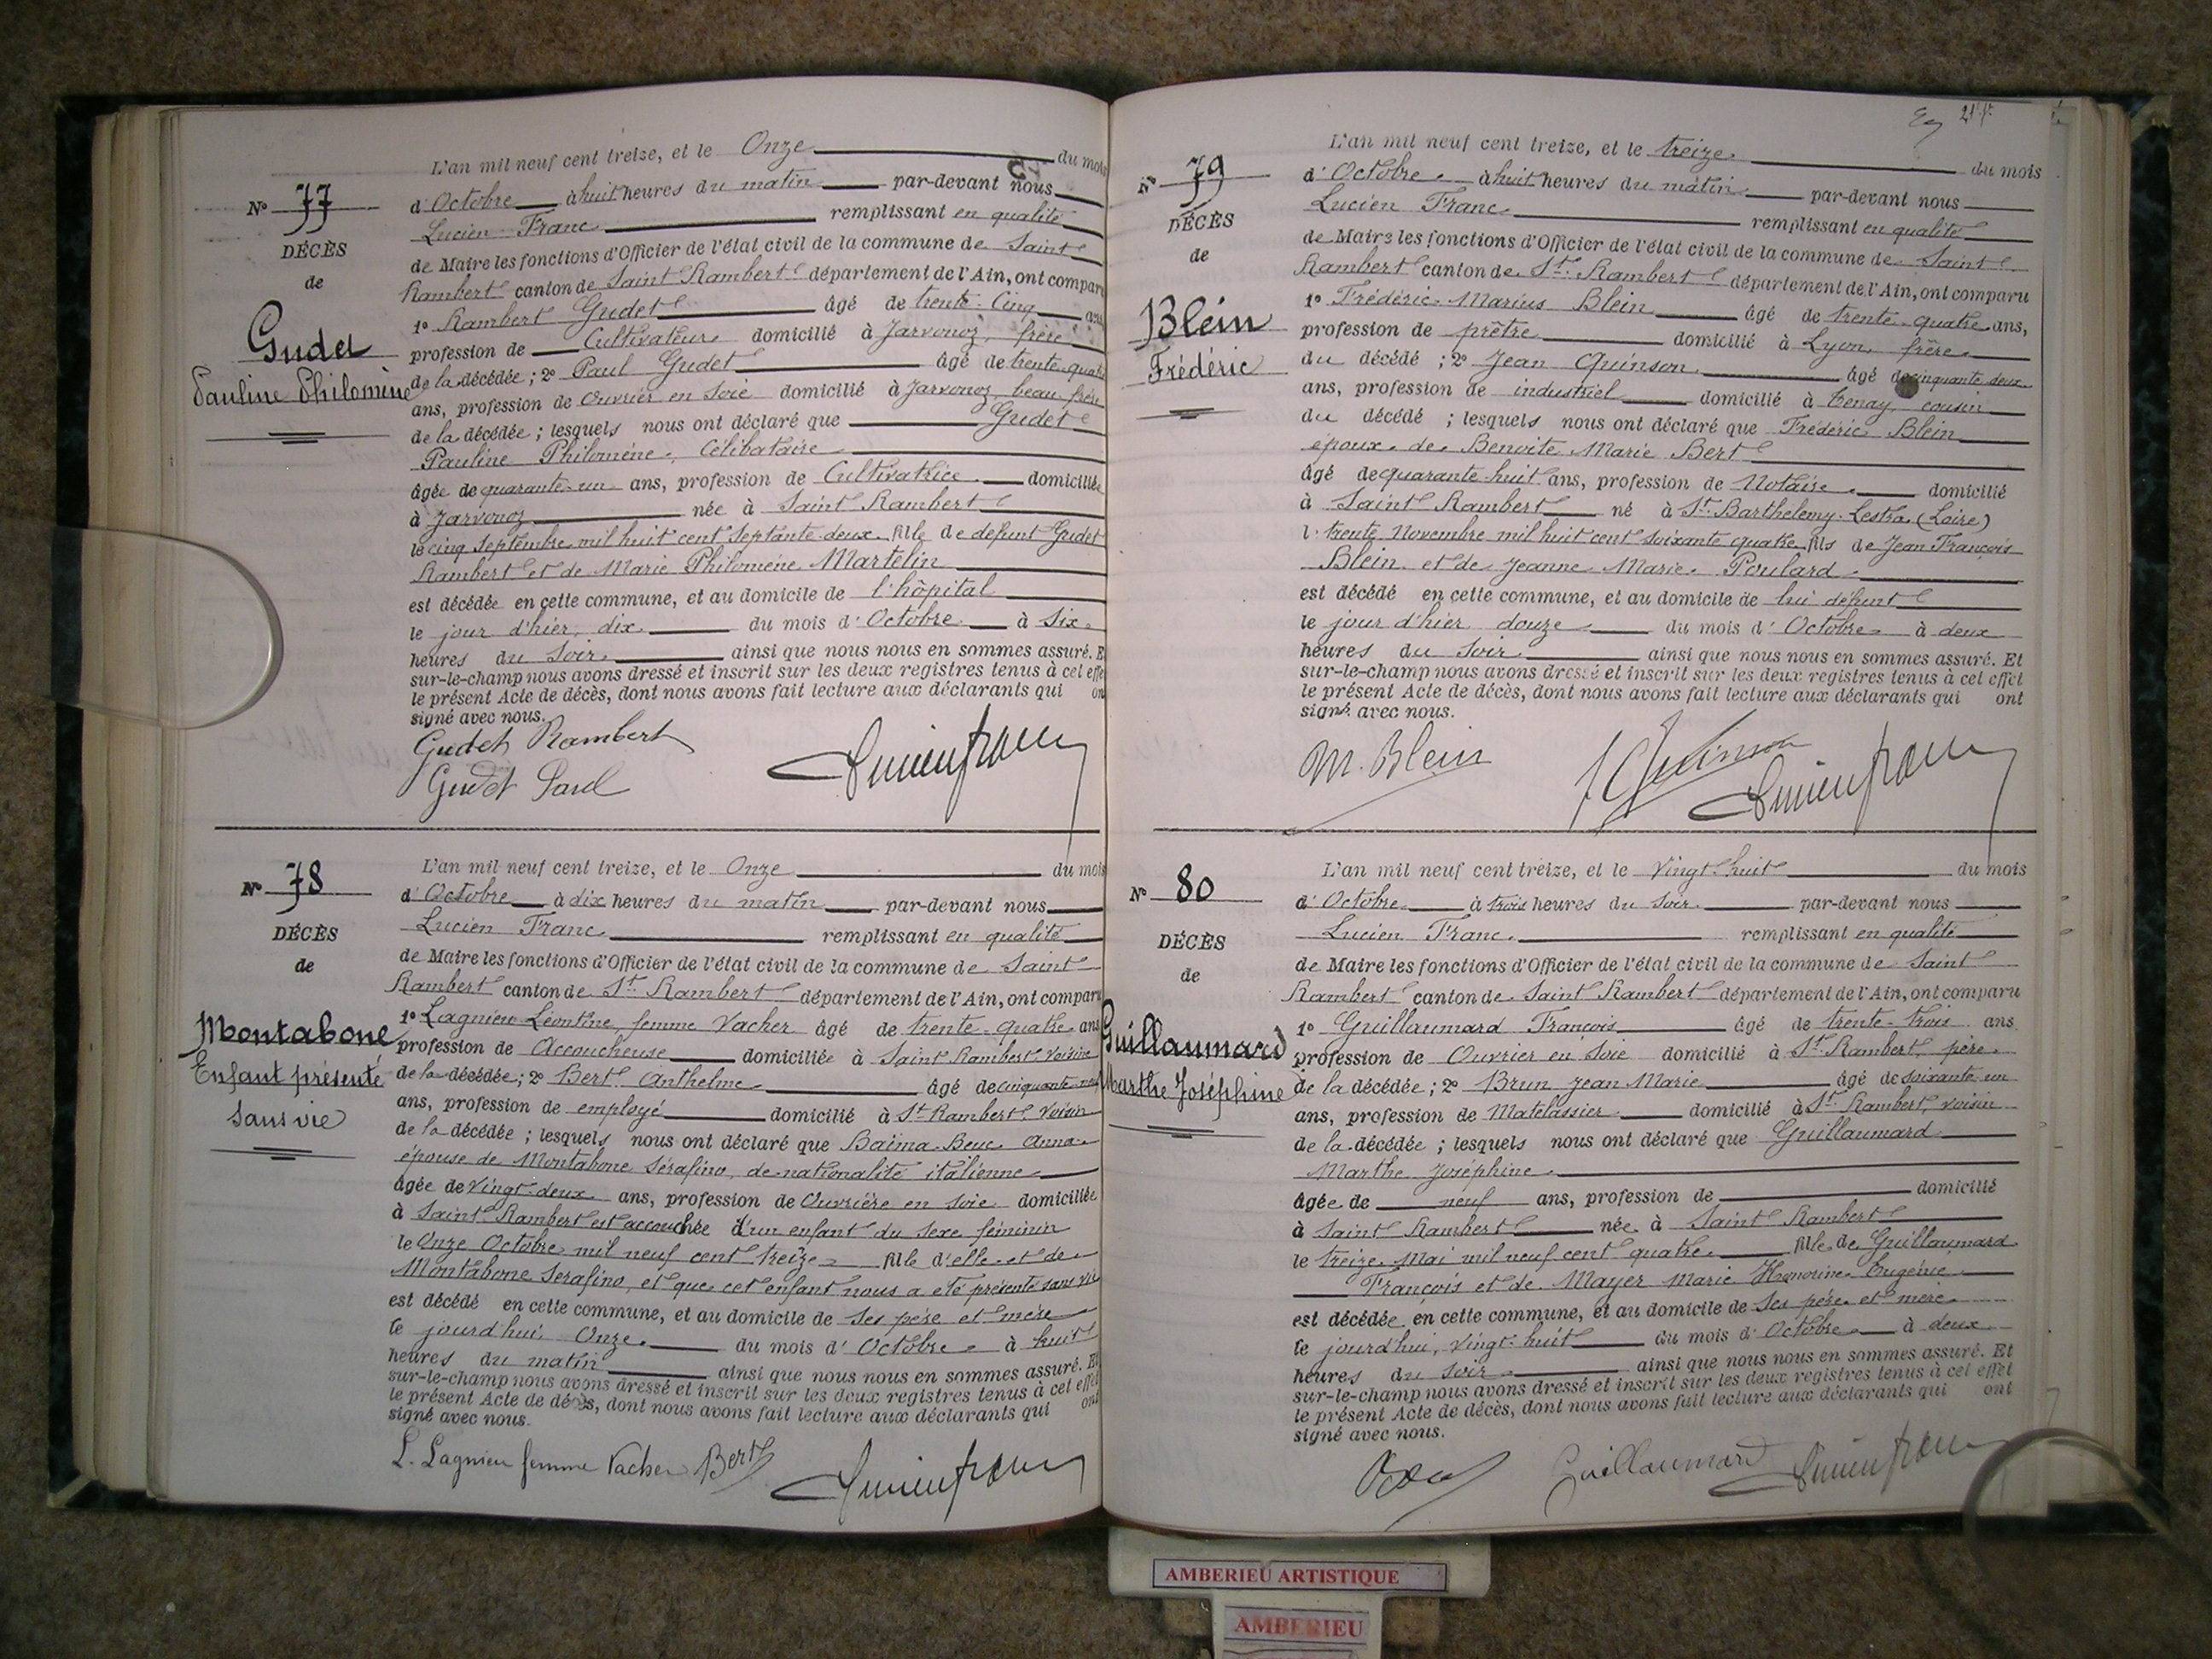 L'an mil neuf cent treize, et le Onze du mois
N° 77
d'Octobre à huit heures du matin par-devant nous
Lucien Franc remplissant en qualité
DÉCÈS
de Maire les fonctions d'Officier de l'état civil de la commune de Saint
de
Rambert canton de Saint Rambert département de l'Ain, ont comparu
1° Rambert Gudet âgé de trente-cinq ans
Gudet
profession de Cultivateur domicilié à Jarvonoz, frère
Pauline Philomène
de la décédée ; 2° Paul Gudet âgé de trente-quatre
ans, profession de Ouvrier en soie domicilié à Jarvonoz, beau frère
de la décédée ; lesquels nous ont déclaré que Gudet
Pauline Philomène, Célibataire
âgée de quarante-un ans, profession de Cultivatrice domiciliée
à Jarvonoz née à Saint Rambert
le cinq Septembre mil huit cent septante-deux fille de défunt Gudet
Rambert et de Marie Philomène Martelin
est décédée en cette commune, et au domicile de l'hôpital
le jour d'hier, dix du mois d'Octobre à six
heures du soir ainsi que nous nous en sommes assuré. Et
sur-le-champ nous avons dressé et inscrit sur les deux registres tenus à cet effet
le présent Acte de décès, dont nous avons fait lecture aux déclarants qui ont
signé avec nous.
Gudet Rambert
Gudet Paul
Lucien Franc
L'an mil neuf cent treize, et le Onze du mois
N° 78
d'Octobre à dix heures du matin par-devant nous
Lucien Franc remplissant en qualité
DÉCÈS
de Maire les fonctions d'Officier de l'état civil de la commune de Saint
de
Rambert canton de St. Rambert département de l'Ain, ont comparu
1° Lagnieu Léontine, femme Vacher âgé de trente-quatre ans
Montabone
profession de Accoucheuse domiciliée à Saint Rambert voisine
Enfant présenté
de la décédée ; 2° Bert Anthelme âgé de cinquante-neuf
sans vie
ans, profession de employé domicilié à St Rambert, voisin
de la décédée ; lesquels nous ont déclaré que Baima Beuc Anna
épouse de Montabone Sérafino, de nationalité italienne
âgée de vingt-deux ans, profession de Ouvrière en soie domiciliée
à Saint Rambert est accouchée d'un enfant du sexe féminin
le Onze Octobre mil neuf cent treize fille d'elle et de
Montabone Serafino, et que cet enfant nous a été présenté sans vie
est décédé en cette commune, et au domicile de ses père et mère
le jourd'hui Onze du mois d'Octobre à huit
heures du matin ainsi que nous nous en sommes assuré. Et
sur-le-champ nous avons dressé et inscrit sur les deux registres tenus à cet effet
le présent Acte de décès, dont nous avons fait lecture aux déclarants qui ont
signé avec nous.
L. Lagnieu femme Vacher Bert Lucien Franc
L'an mil neuf cent treize, et le treize du mois
N° 79
d'Octobre à huit heures du matin par-devant nous
Lucien Franc remplissant en qualité
DÉCÈS
de Maire les fonctions d'Officier de l'état civil de la commune de Saint
de
Rambert canton de St. Rambert département de l'Ain, ont comparu
1° Frédéric Marius Blein âgé de trente-quatre ans,
Blein
profession de prêtre domicilié à Lyon, frère
Frédéric
du décédé ; 2° Jean Quinson âgé de cinquante deux
ans, profession de industriel domicilié à tenay, cousin
du décédé ; lesquels nous ont déclaré que Frédéric Blein
époux de Benoite Marie Bert
âgé de quarante-huit ans, profession de Notaire domicilié
à Saint Rambert né à St. Barthelemy-Lestra (Loire)
l. trente Novembre mil huit cent soixante quatre fils de Jean François
Blein et de Jeanne Marie Poulard
est décédé en cette commune, et au domicile de lui défunt
le jour d'hier douze du mois d'Octobre à deux
heures du soir ainsi que nous nous en sommes assuré. Et
sur-le-champ nous avons dressé et inscrit sur les deux registres tenus à cet effet
le présent Acte de décès, dont nous avons fait lecture aux déclarants qui ont
signé avec nous.
M. Blein J Quinson Lucien Franc
L'an mil neuf cent treize, et le vingt-huit du mois
N° 80
d'Octobre à trois heures du soir par-devant nous
Lucien Franc remplissant en qualité
DÉCÈS
de Maire les fonctions d'Officier de l'état civil de la commune de Saint
de
Rambert canton de Saint Rambert département de l'Ain, ont comparu
1° Guillaumard François âgé de trente-trois ans
Guillaumard
profession de Ouvrier en soie domicilié à St Rambert, père
Marthe Joséphine
de la décédée ; 2° Brun Jean Marie âgé de soixante-un
ans, profession de Matelassier domicilié à St. Rambert, voisin
de la décédée ; lesquels nous ont déclaré que Guillaumard
Marthe Joséphine
âgée de neuf ans, profession de domicilié
à Saint Rambert née à Saint Rambert
le treize Mai mil neuf cent quatre fille de Guillaumard
François et de Mayer Marie Honorine Eugénie
est décédée en cette commune, et au domicile de ses père et mère
le jourd'hui, vingt-huit du mois d'Octobre à deux
heures du soir ainsi que nous nous en sommes assuré. Et
sur-le-champ nous avons dressé et inscrit sur les deux registres tenus à cet effet
le présent Acte de décès, dont nous avons fait lecture aux déclarants qui ont
signé avec nous.
Guillaumard Lucien Franc
AMBERIEU ARTISTIQUE
AMBERIEU